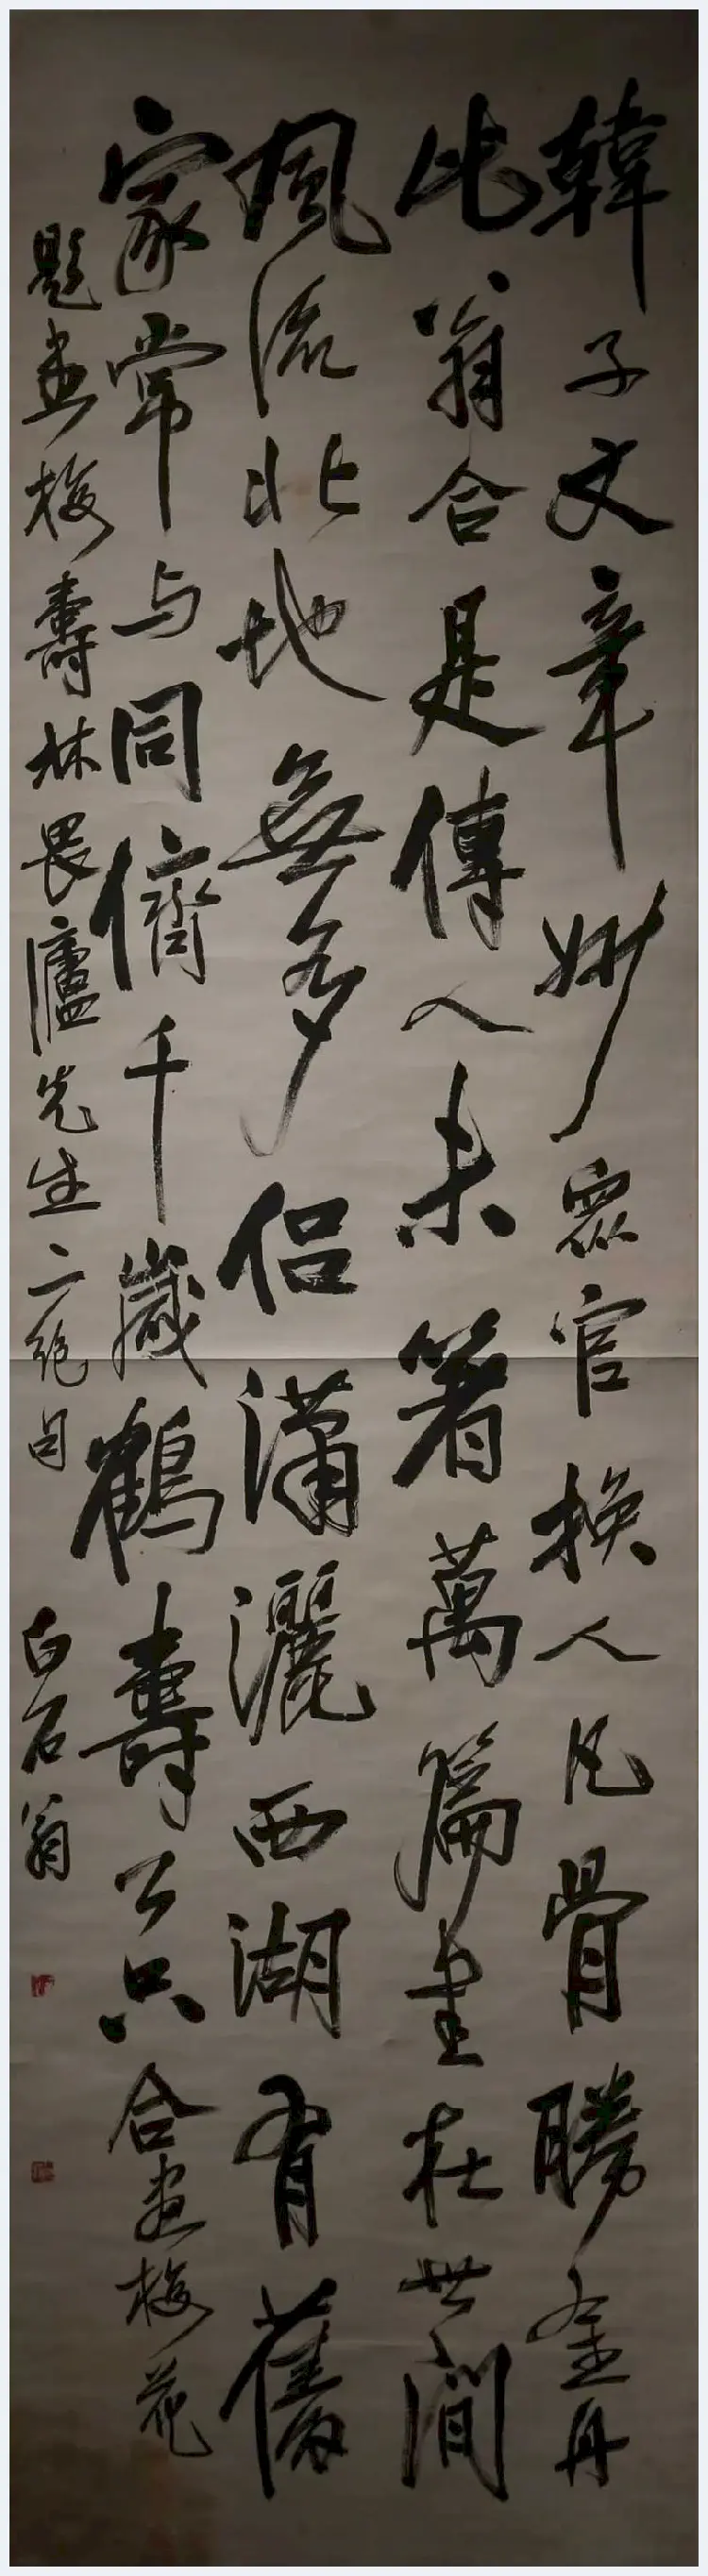 韓子文章妙眾官換人凡骨勝金丹
此翁合是傳人未著萬篇書在世間
風流北地無多侶瀟灑西湖有舊
家常与同儕千歲鶴壽公只合畫梅花
題畫梅壽林畏廬先生二絕句
白石翁